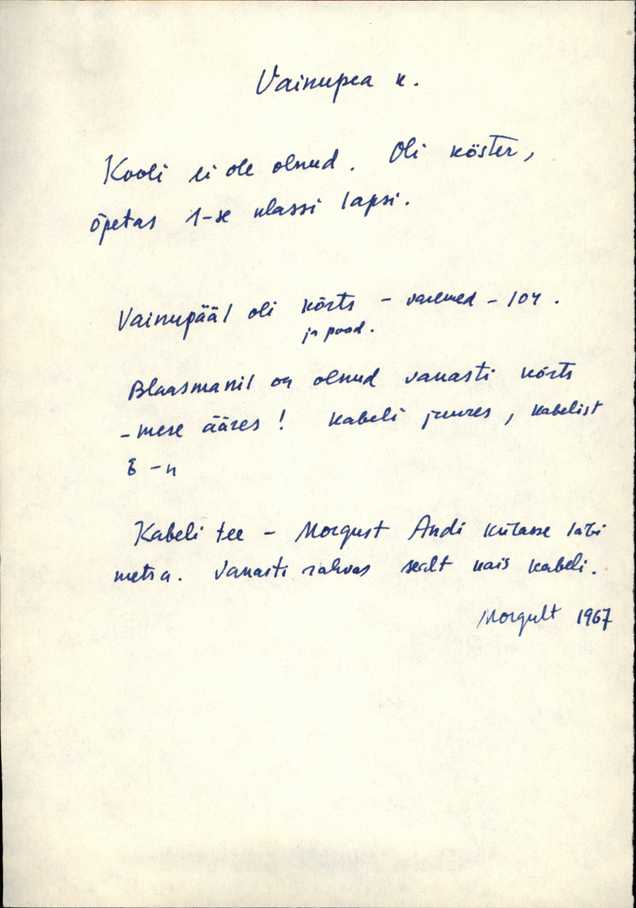 Vainupea k.
Kooli ei ole olnud. Oli köster,
õpetas 1-se klassi lapsi.
Vainupääl oli kõrts - varemed - 104.
ja pood.
Blaasmanil on olnud vanasti kõrts
- mere ääres! Kabeli juures, kabelist
E - n
Kabeli tee - Norgust Andi külasse läbi
metsa. Vanasti rahvas sealt käis kabeli.
Norgult 1967